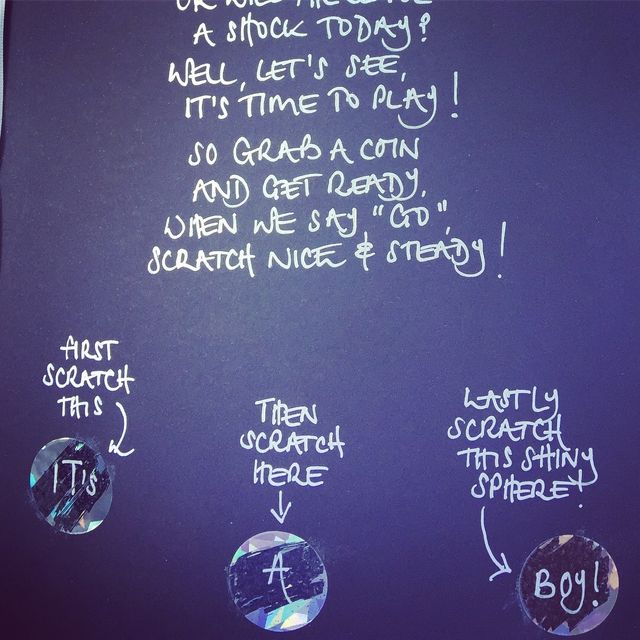 A SHOCK TODAY?
WELL, LET'S SEE,
IT'S TIME TO PLAY!
SO GRAB A COIN
AND GET READY,
WHEN WE SAY "GO",
SCRATCH NICE & STEADY!
FIRST
SCRATCH
THIS
ITis
THEN
SCRATCH
HERE
A
LASTLY
SCRATCH
THIS SHINY
SPHERE!
BOY!